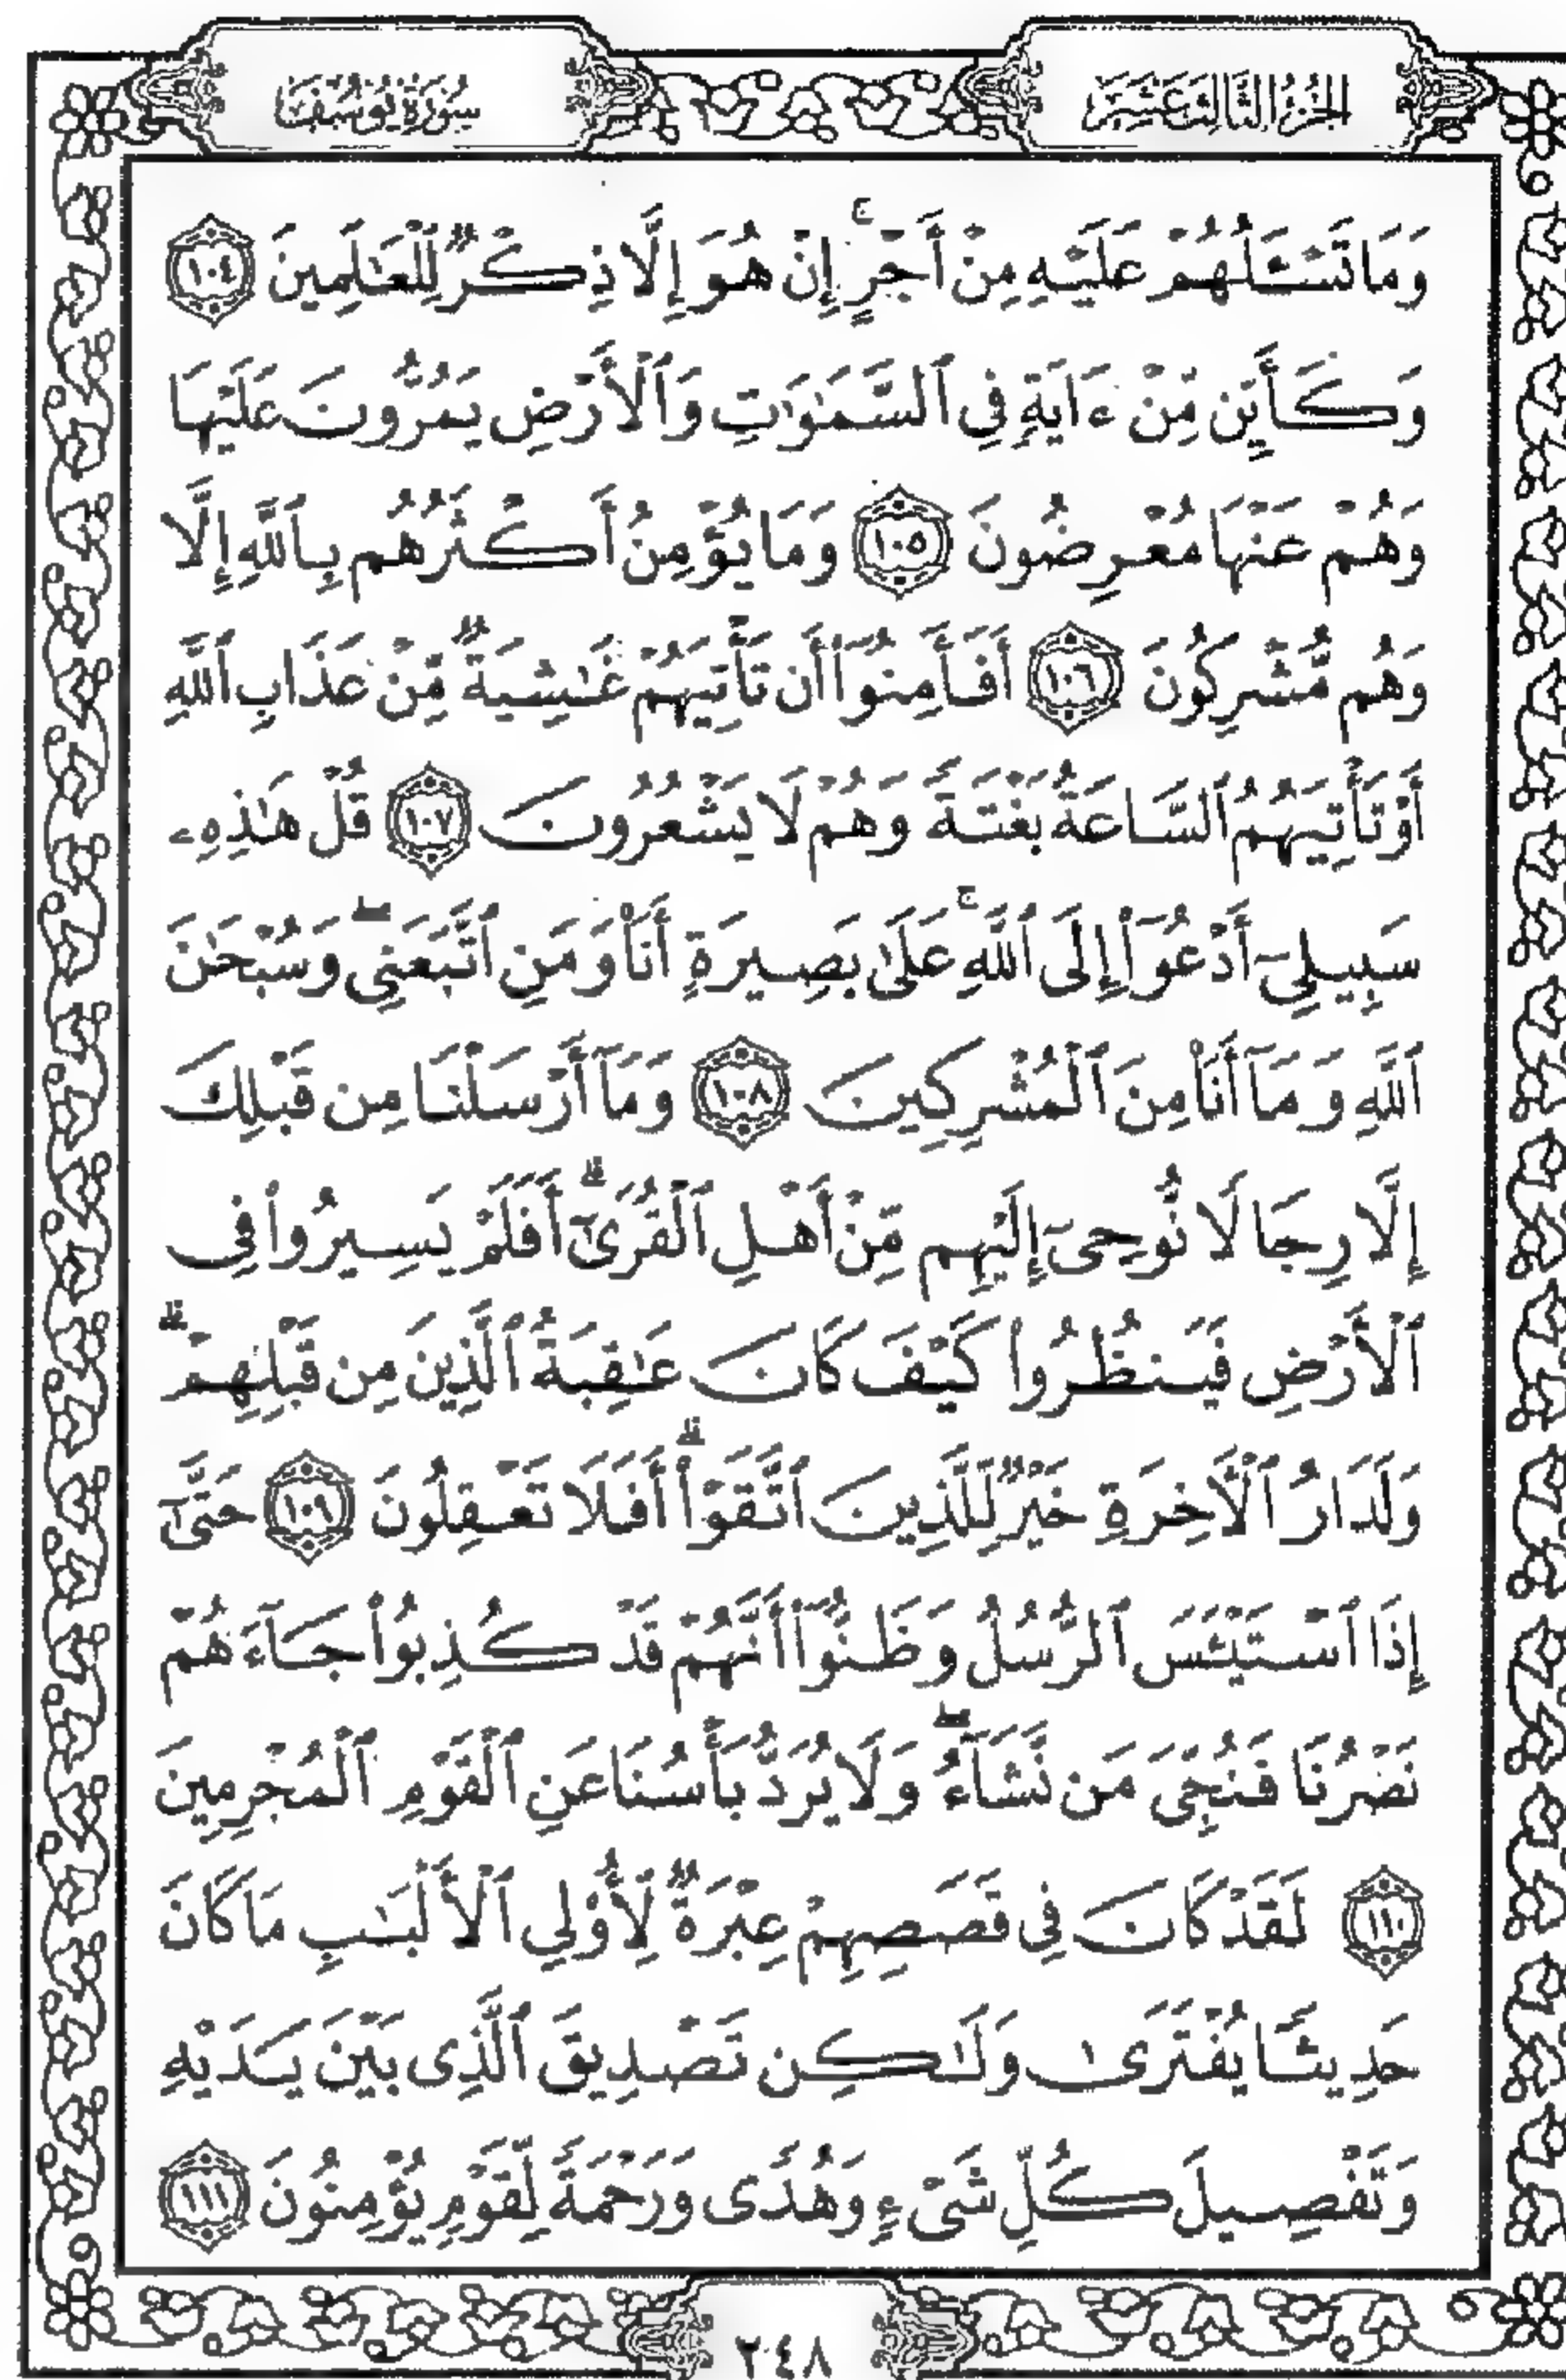 الجزء الثالث عشر
سورة يوسف
وَمَا تَسْـَٔلُهُمْ عَلَيْهِ مِنْ أَجْرٍ ۚ إِنْ هُوَ إِلَّا ذِكْرٌ لِّلْعَـٰلَمِينَ ١٠٤
وَكَأَيِّن مِّنْ ءَايَةٍ فِى ٱلسَّمَـٰوَٰتِ وَٱلْأَرْضِ يَمُرُّونَ عَلَيْهَا
وَهُمْ عَنْهَا مُعْرِضُونَ ١٠٥ وَمَا يُؤْمِنُ أَكْثَرُهُم بِٱللَّهِ إِلَّا
وَهُم مُّشْرِكُونَ ١٠٦ أَفَأَمِنُوٓا۟ أَن تَأْتِيَهُمْ غَـٰشِيَةٌ مِّنْ عَذَابِ ٱللَّهِ
أَوْ تَأْتِيَهُمُ ٱلسَّاعَةُ بَغْتَةً وَهُمْ لَا يَشْعُرُونَ ١٠٧ قُلْ هَـٰذِهِۦ
سَبِيلِىٓ أَدْعُوٓا۟ إِلَى ٱللَّهِ ۚ عَلَىٰ بَصِيرَةٍ أَنَا۠ وَمَنِ ٱتَّبَعَنِى ۖ وَسُبْحَـٰنَ
ٱللَّهِ وَمَآ أَنَا۠ مِنَ ٱلْمُشْرِكِينَ ١٠٨ وَمَآ أَرْسَلْنَا مِن قَبْلِكَ
إِلَّا رِجَالًا نُّوحِىٓ إِلَيْهِم مِّنْ أَهْلِ ٱلْقُرَىٰٓ ۗ أَفَلَمْ يَسِيرُوا۟ فِى
ٱلْأَرْضِ فَيَنظُرُوا۟ كَيْفَ كَانَ عَـٰقِبَةُ ٱلَّذِينَ مِن قَبْلِهِمْ ۗ
وَلَدَارُ ٱلْـَٔاخِرَةِ خَيْرٌ لِّلَّذِينَ ٱتَّقَوْا۟ ۗ أَفَلَا تَعْقِلُونَ ١٠٩ حَتَّىٰٓ
إِذَا ٱسْتَيْـَٔسَ ٱلرُّسُلُ وَظَنُّوٓا۟ أَنَّهُمْ قَدْ كُذِبُوا۟ جَآءَهُمْ
نَصْرُنَا فَنُجِّىَ مَن نَّشَآءُ ۖ وَلَا يُرَدُّ بَأْسُنَا عَنِ ٱلْقَوْمِ ٱلْمُجْرِمِينَ
١١٠ لَقَدْ كَانَ فِى قَصَصِهِمْ عِبْرَةٌ لِّأُو۟لِى ٱلْأَلْبَـٰبِ مَا كَانَ
حَدِيثًا يُفْتَرَىٰ وَلَـٰكِن تَصْدِيقَ ٱلَّذِى بَيْنَ يَدَيْهِ
وَتَفْصِيلَ كُلِّ شَىْءٍ وَهُدًى وَرَحْمَةً لِّقَوْمٍ يُؤْمِنُونَ ١١١
٢٤٨